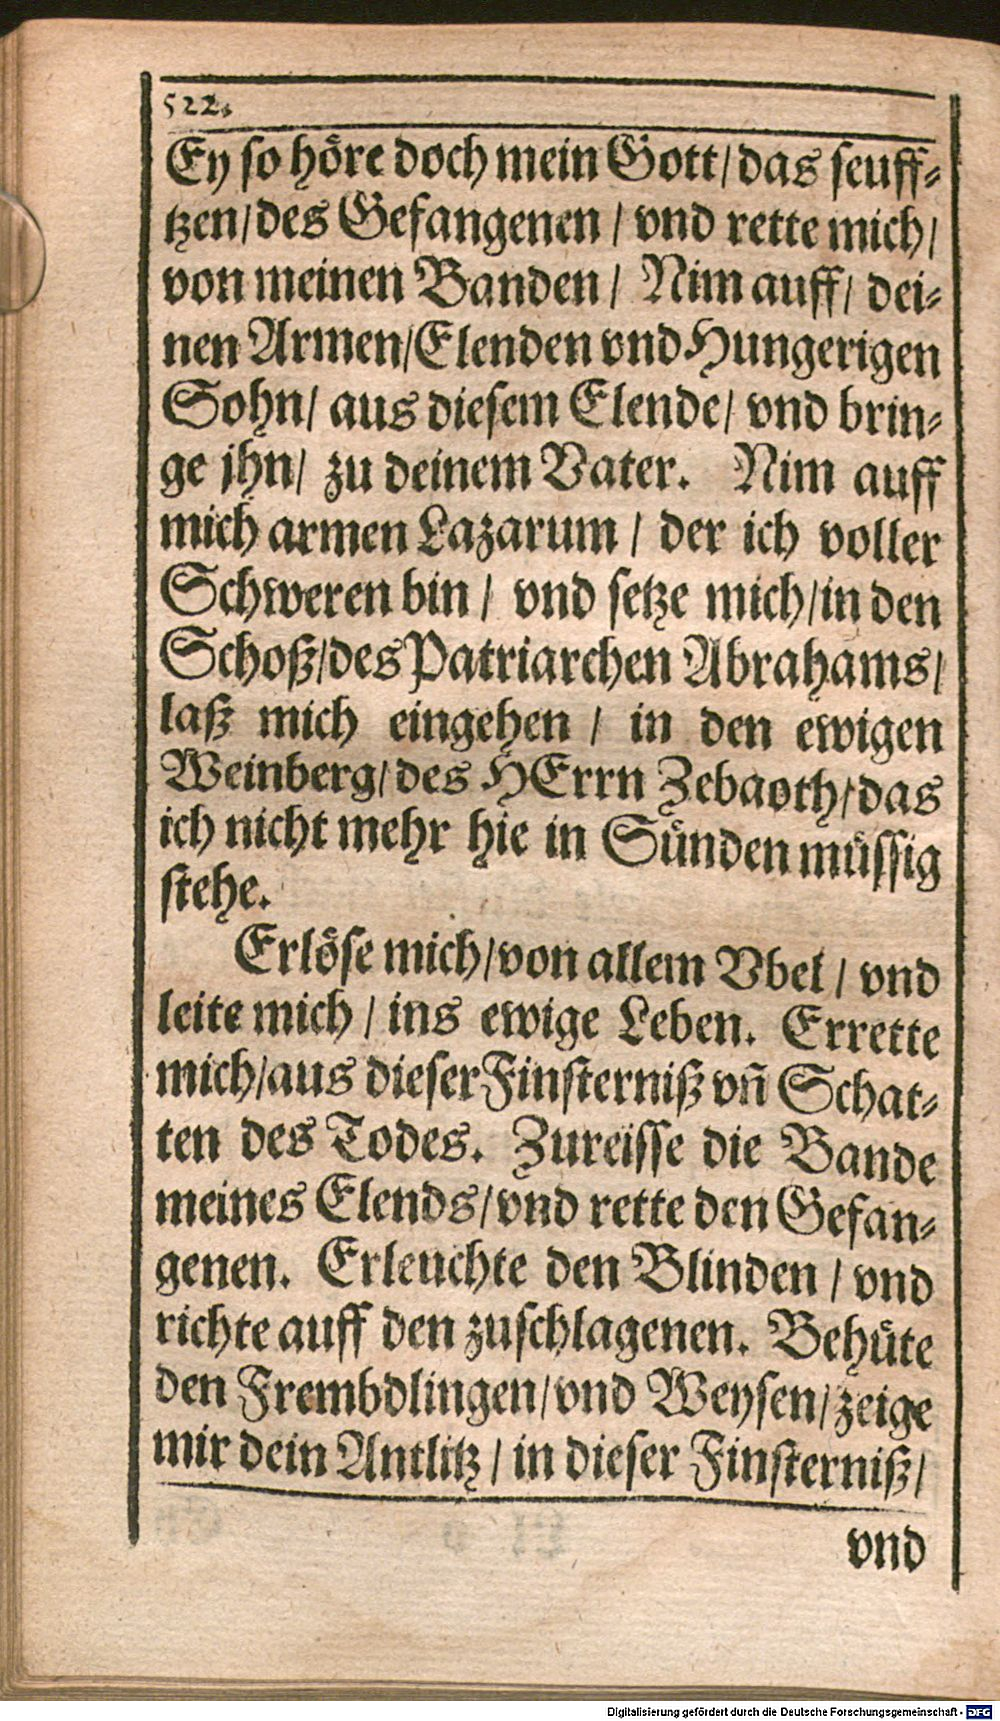 522.
Ey so höre doch mein Gott/das seuff-
tzen/des Gefangenen / vnd rette mich/
von meinen Banden / Nim auff/ dei-
nen Armen/Elenden vnd Hungerigen
Sohn/ aus diesem Elende/ vnd brin-
ge jhn/ zu deinem Vater. Nim auff
mich armen Lazarum / der ich voller
Schweren bin / vnd setze mich/in den
Schoß/des Patriarchen Abrahams/
laß mich eingehen / in den ewigen
Weinberg/des HErrn Zebaoth/das
ich nicht mehr hie in Sünden müssig
stehe.
Erlöse mich/von allem Vbel / vnd
leite mich / ins ewige Leben. Errette
mich/aus dieser Finsterniß vñ Schat-
ten des Todes. Zureisse die Bande
meines Elends/vnd rette den Gefan-
genen. Erleuchte den Blinden / vnd
richte auff den zuschlagenen. Behüte
den Frembdlingen/vnd Weysen/zeige
mir dein Antlitz / in dieser Finsterniß/
vnd
Digitalisierung gefördert durch die Deutsche Forschungsgemeinschaft - DFG